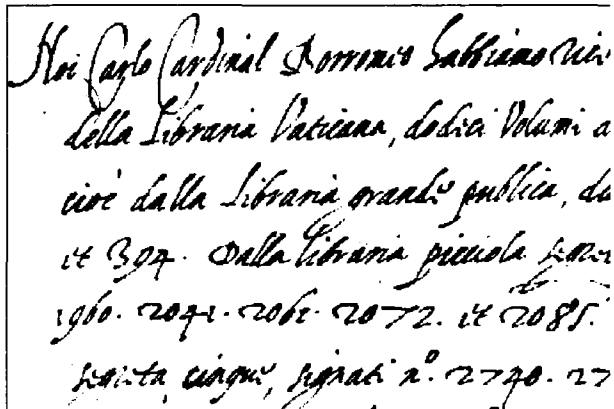 Noi Carlo Cardinal Borromeo habbiamo rice
della Libraria Vaticana, dodici Volumi a
cioè dalla Libraria grande publica, du
et 394. Dalla libraria picciola segre
1960. 2041. 2061. 2072. et 2085.
segreta cinque, signati nº. 2740. 27